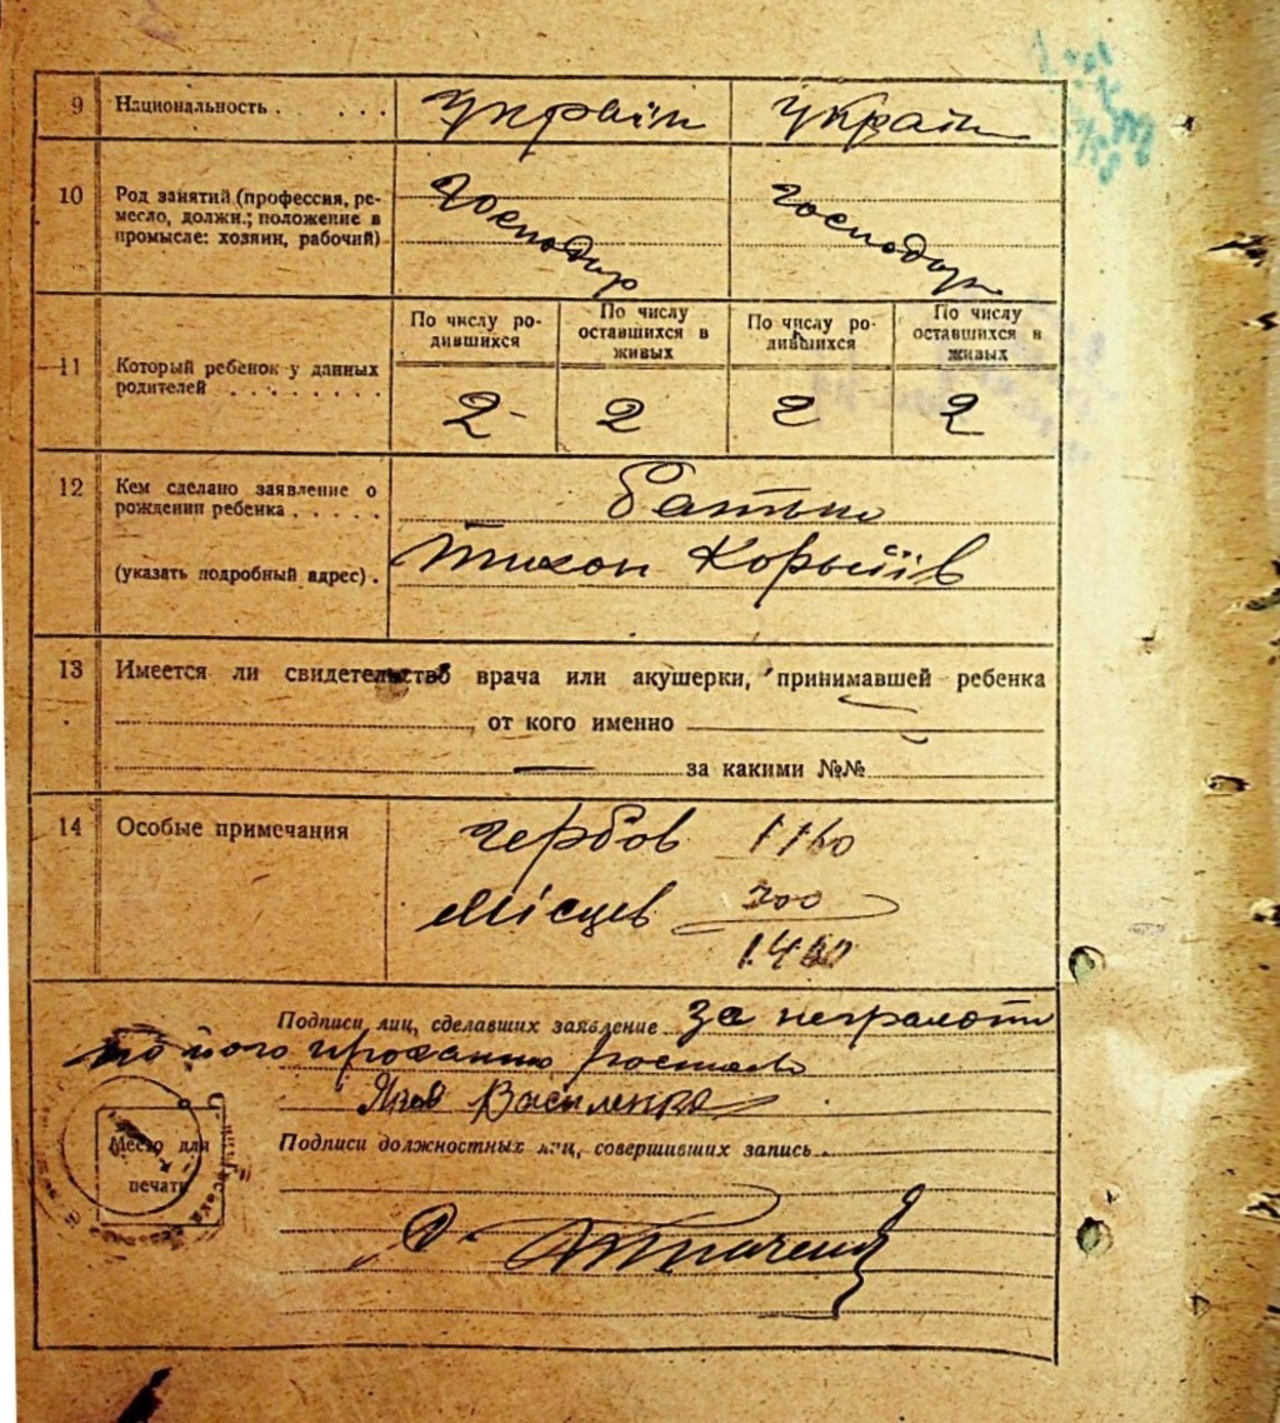 9 Национальность . . . . . україн україн
10 Род занятий (профессия, ре-
месло, должн.; положение в
промысле: хозяин, рабочий)
господар господар
По числу ро-
дившихся
По числу
оставшихся в
живых
По числу ро-
дившихся
По числу
оставшихся в
живых
11 Который ребенок у данных
родителей . . . . . . . .
2 2 2 2
12 Кем сделано заявление о
рождении ребенка . . . . .
Батько
(указать подробный адрес) .
Тихон
13 Имеется ли свидетельство врача или акушерки, принимавшей ребенка
, от кого именно
за какими №№
14 Особые примечания
гербов 1160
місцев 300
14
Подписи лиц, сделавших заявление за неграмотн
по його проханню
Яков Василенко
Место для
печати
Подписи должностных лиц, совершивших запись